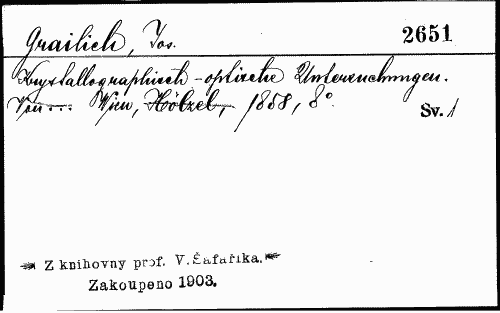 Grailich, Jos. 2651
Krystallographisch-optische Untersuchungen.
Von --- Wien, Hölzel, 1858, 8°.
Sv. 1
Z knihovny prof. V. Šafaříka.
Zakoupeno 1903.